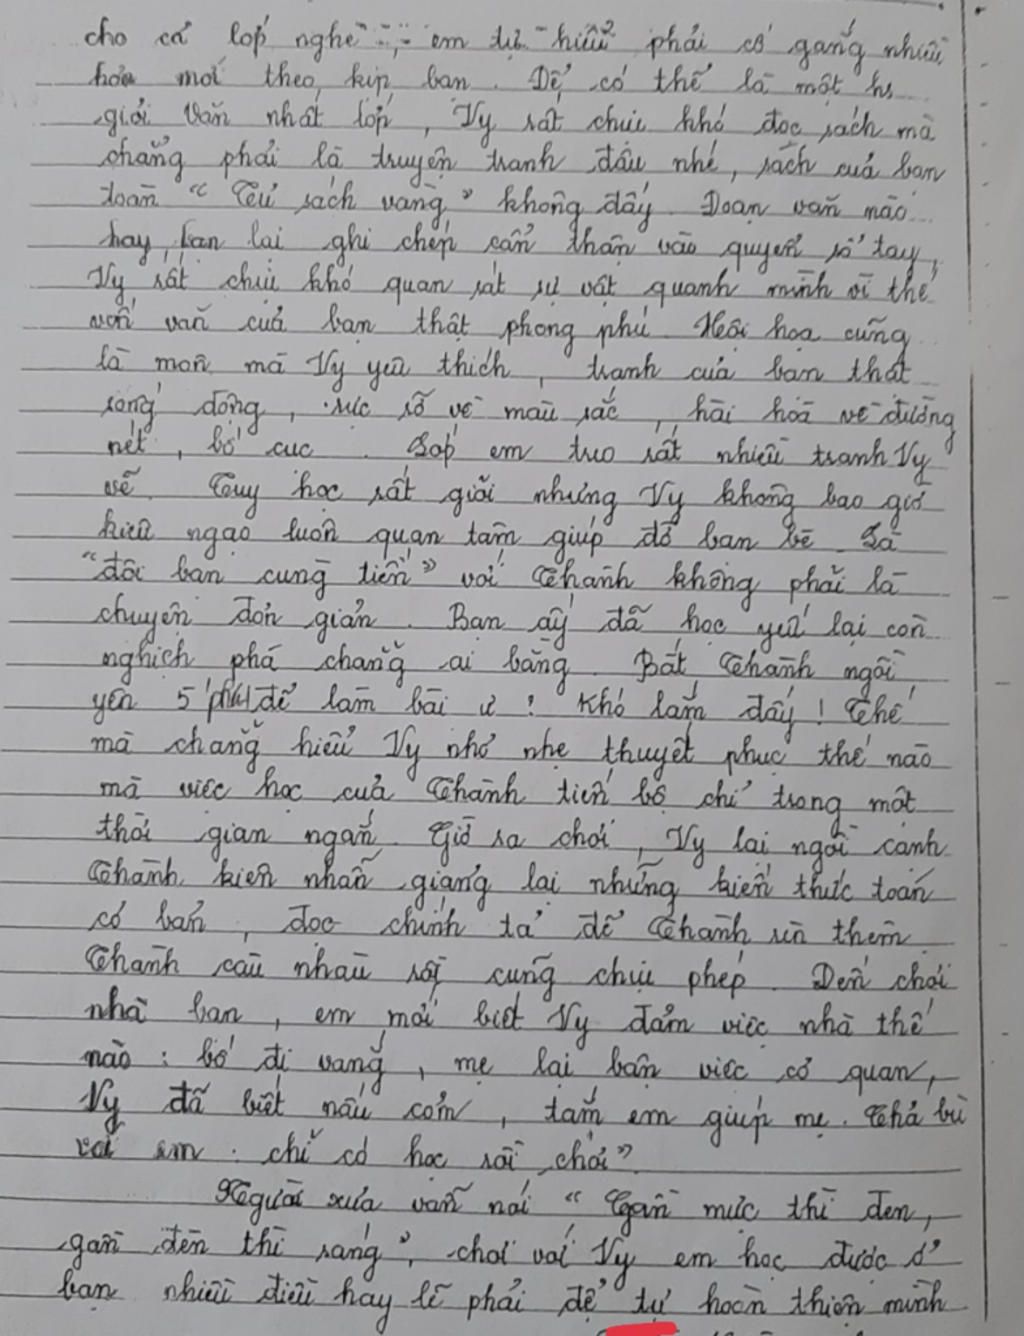 cho cả lớp nghe ..., em tự hiểu phải cố gắng nhiều
hơn mới theo kịp bạn. Để có thể là một hs
giỏi văn nhất lớp, Vy rất chịu khó đọc sách mà
chẳng phải là truyện tranh đâu nhé, sách của bạn
toàn "Tủ sách vàng" không đấy. Đoạn văn nào
hay, bạn lại ghi chép cẩn thận vào quyển sổ tay,
Vy rất chịu khó quan sát sự vật quanh mình vì thế
vốn văn của bạn thật phong phú. Hội hoạ cũng
là môn mà Vy yêu thích, tranh của bạn thật
sống động, rực rỡ về màu sắc, hài hoà về đường
nét, bố cục. Lớp em treo rất nhiều tranh Vy
vẽ. Tuy học rất giỏi nhưng Vy không bao giờ
kiêu ngạo luôn quan tâm giúp đỡ bạn bè. Là
"đôi bạn cùng tiến" với Thành không phải là
chuyện đơn giản. Bạn ấy đã học yếu lại còn
nghịch phá chẳng ai bằng. Bắt Thành ngồi
yên 5 phút để làm bài ư! Khó lắm đấy! Thế
mà chẳng hiểu Vy nhỏ nhẹ thuyết phục thế nào
mà việc học của Thành tiến bộ chỉ trong một
thời gian ngắn. Giờ ra chơi, Vy lại ngồi cạnh
Thành kiên nhẫn giảng lại những kiến thức toán
cơ bản, đọc chính tả để Thành rèn thêm.
Thành càu nhàu rồi cũng chịu phép. Đến chơi
nhà bạn, em mới biết Vy đảm việc nhà thế
nào: bố đi vắng, mẹ lại bận việc cơ quan,
Vy đã biết nấu cơm, tắm em giúp mẹ. Chả bù
với em. chỉ có học rồi chơi"
Người xưa vẫn nói "Gần mực thì đen,
gần đèn thì sáng", chơi với Vy em học được ở
bạn nhiều điều hay lẽ phải để tự hoàn thiện mình